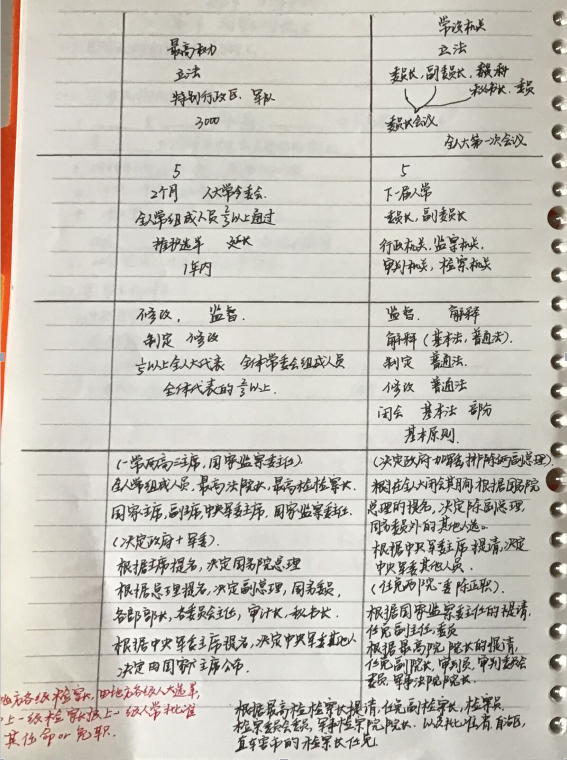 最高权力
立法
特别行政区、军队
3000
常设机关
立法
委员长,副委员长,
秘书长、委员
委员长会议
全人大第一次会议
5
2个月 人大常委会.
全人常组成人员2/3以上通过
推迟选举 延长
1年内
5
下一届人常
委员长,副委员长
行政机关,监察机关,
审判机关,检察机关
修改, 监督.
制定 修改
1/5以上全人大代表 全体常委会组成人员
全体代表的2/3以上.
监督. 解释
解释(基本法,普通法).
制定 普通法.
修改 普通法
闭会 基本法 部分
基本原则.
(一常两高三主席,国家监察委主任).
全人常组成人员,最高法院长,最高检检察长.
国家主席,副主席,中央军委主席,国家监察委主任.
(决定政府+军委).
根据主席提名,决定国务院总理
根据总理提名,决定副总理,国务委员,
各部部长,各委员会主任,审计长,秘书长.
根据中央军委主席提名,决定中央军委其他人
决定由国家主席公布.
(决定政府加军委排除俩副总理).
在全人大闭会其间,根据国务院
总理的提名,决定除副总理,
国务委员外的其他人选。
根据中央军委主席提请,决定
中央军委其他人员.
(任免两院一委除正职).
根据国家监察委主任的提请,
任免副主任,委员
根据最高院院长的提请,
任免副院长,审判员,审判委员会
委员,军事法院院长.
根据最高检检察长提请,任免副检察长,检察员,
检察委员会委员,军事检察院院长.以及批准省,自治区,
直辖市的检察长任免
地方各级检察长,由地方各级人大选举,
上一级检察长报上一级人常批准
其任命or免职.